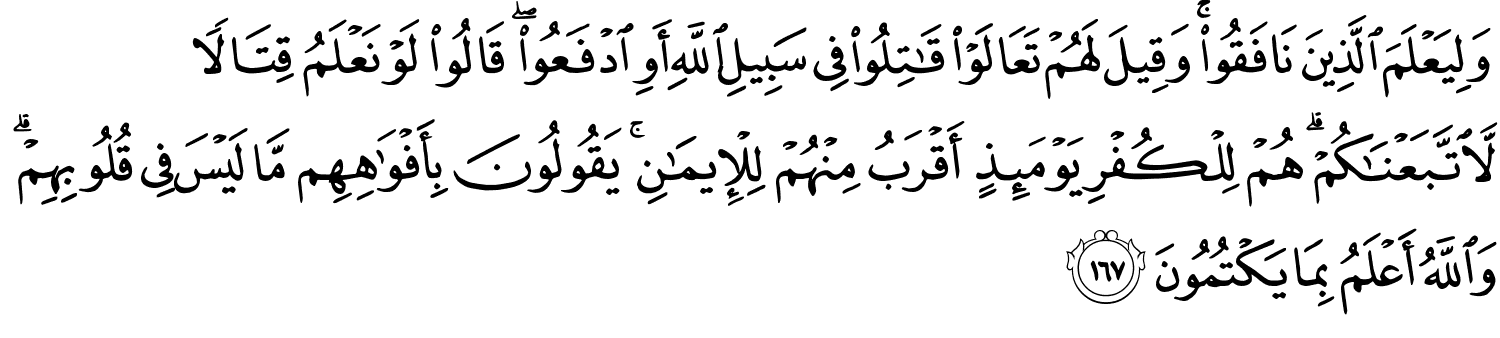 وَلِيَعْلَمَ ٱلَّذِينَ نَافَقُوا۟ ۚ وَقِيلَ لَهُمْ تَعَالَوْا۟ قَـٰتِلُوا۟ فِى سَبِيلِ ٱللَّهِ أَوِ ٱدْفَعُوا۟ ۖ قَالُوا۟ لَوْ نَعْلَمُ قِتَالًا
لَّٱتَّبَعْنَـٰكُمْ ۗ هُمْ لِلْكُفْرِ يَوْمَئِذٍ أَقْرَبُ مِنْهُمْ لِلْإِيمَـٰنِ ۚ يَقُولُونَ بِأَفْوَٰهِهِم مَّا لَيْسَ فِى قُلُوبِهِمْ ۗ
وَٱللَّهُ أَعْلَمُ بِمَا يَكْتُمُونَ ١٦٧